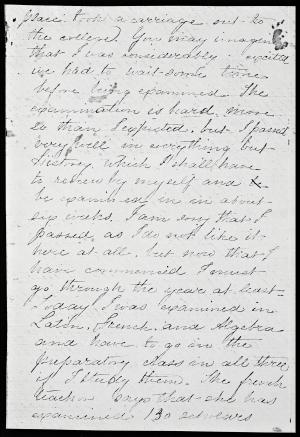 place. took a carriage out to
the college. You may imagine
that I was considerably excited
we had to wait some time
before being examined. The
examination is hard, more
so than I expected, but I passed
very well in everything but
History, which I shall have
to review by myself and
be examined in in about
six weeks. I am sorry that I
passed, as I do not like it
here at all, but now that I
have commenced I must
go through the year at least.
Today I was examined in
Latin, French, and Algebra
and have to go in the
preparatory class in all three
if I study them. The french
teacher says that she has
examined 130 scholars